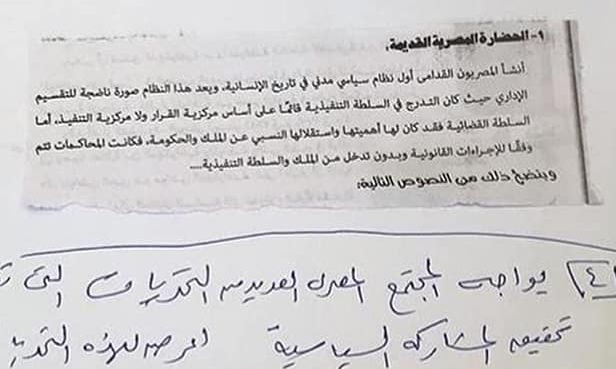 ١- الحضارة المصرية القديمة.
أنشأ المصريون القدامى أول نظام سياسي مدني في تاريخ الإنسانية، ويعد هذا النظام صورة ناضجة للتقسيم
الإداري حيث كان التدرج في السلطة التنفيذية قائمًا على أساس مركزية القرار ولا مركزية التنفيذ، أما
السلطة القضائية فقد كان لها أهميتها واستقلالها النسبي عن الملك والحكومة، فكانت المحاكمات تتم
وفقًا للإجراءات القانونية وبدون تدخل من الملك والسلطة التنفيذية....
ويتضح ذلك من النصوص التالية.
٤) يواجه المجتمع المصرى العديد من التحديات التى
تحقيق المشاركة السياسية اعرض لهذه